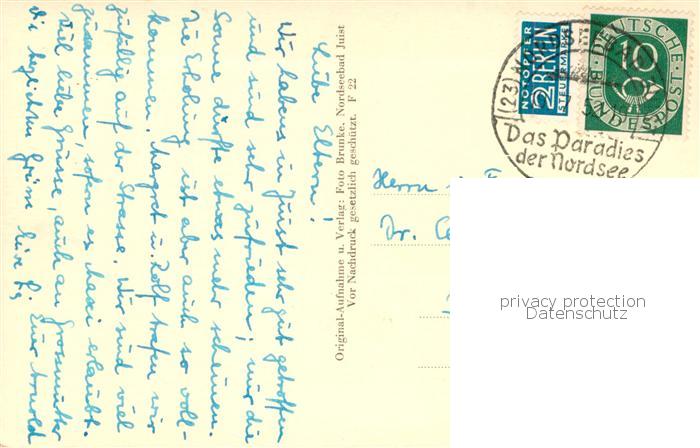 Liebe Eltern!
Wir habens in Juist sehr gut getroffen
und sind sehr zufrieden; nur die
Sonne dürfte etwas mehr scheinen.
Die Erholung ist aber auch so voll-
kommen. Margret u. Rolf trafen wir
zufällig auf der Strasse. Wir sind viel
zusammen, sofern es Maxi erlaubt.
Viel liebe Grüsse, auch an Grossmutter
Euer Arnold
die herzlichsten Grüsse Eure
Original-Aufnahme u. Verlag: Foto Brunke. Nordseebad Juist
Vor Nachdruck gesetzlich geschützt. F 22
NOTOPFER
2 BERLIN
STEUERMARKE
DEUTSCHE
10
BUNDESPOST
(23)
Das Paradies
der Nordsee
Herrn
Dr.
privacy protection
Datenschutz